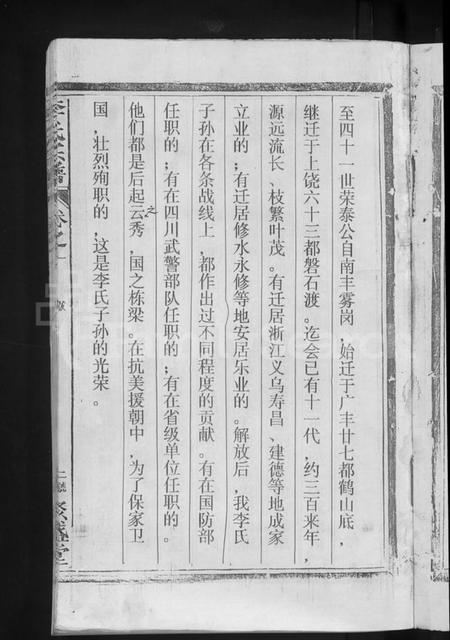 至四十一世荣泰公自南丰雾岗，始迁于广丰廿七都鹤山底，
继迁于上饶六十三都磐石渡。迄会已有十一代，约三百来年，
源远流长、枝繁叶茂。有迁居浙江义乌寿昌、建德等地成家
立业的；有迁居修水永修等地安居乐业的。解放后，我李氏
子孙在各条战线上，都作出过不同程度的贡献。有在国防部
任职的；有在四川武警部队任职的；有在省级单位任职的。
他们都是后起云之秀，国之栋梁。在抗美援朝中，为了保家卫
国，壮烈殉职的，这是李氏子孙的光荣。
李氏宗谱
卷之一